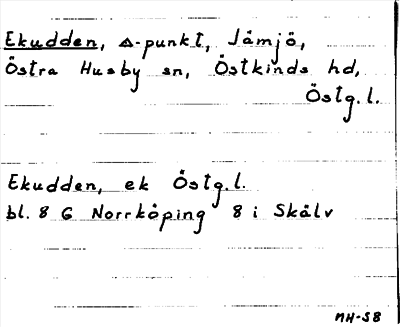 Ekudden, △-punkt, Jämjö,
Östra Husby sn, Östkinds hd,
Östg.l.
Ekudden, ek Östg.l.
bl. 8 G Norrköping 8 i Skälv
MH-58